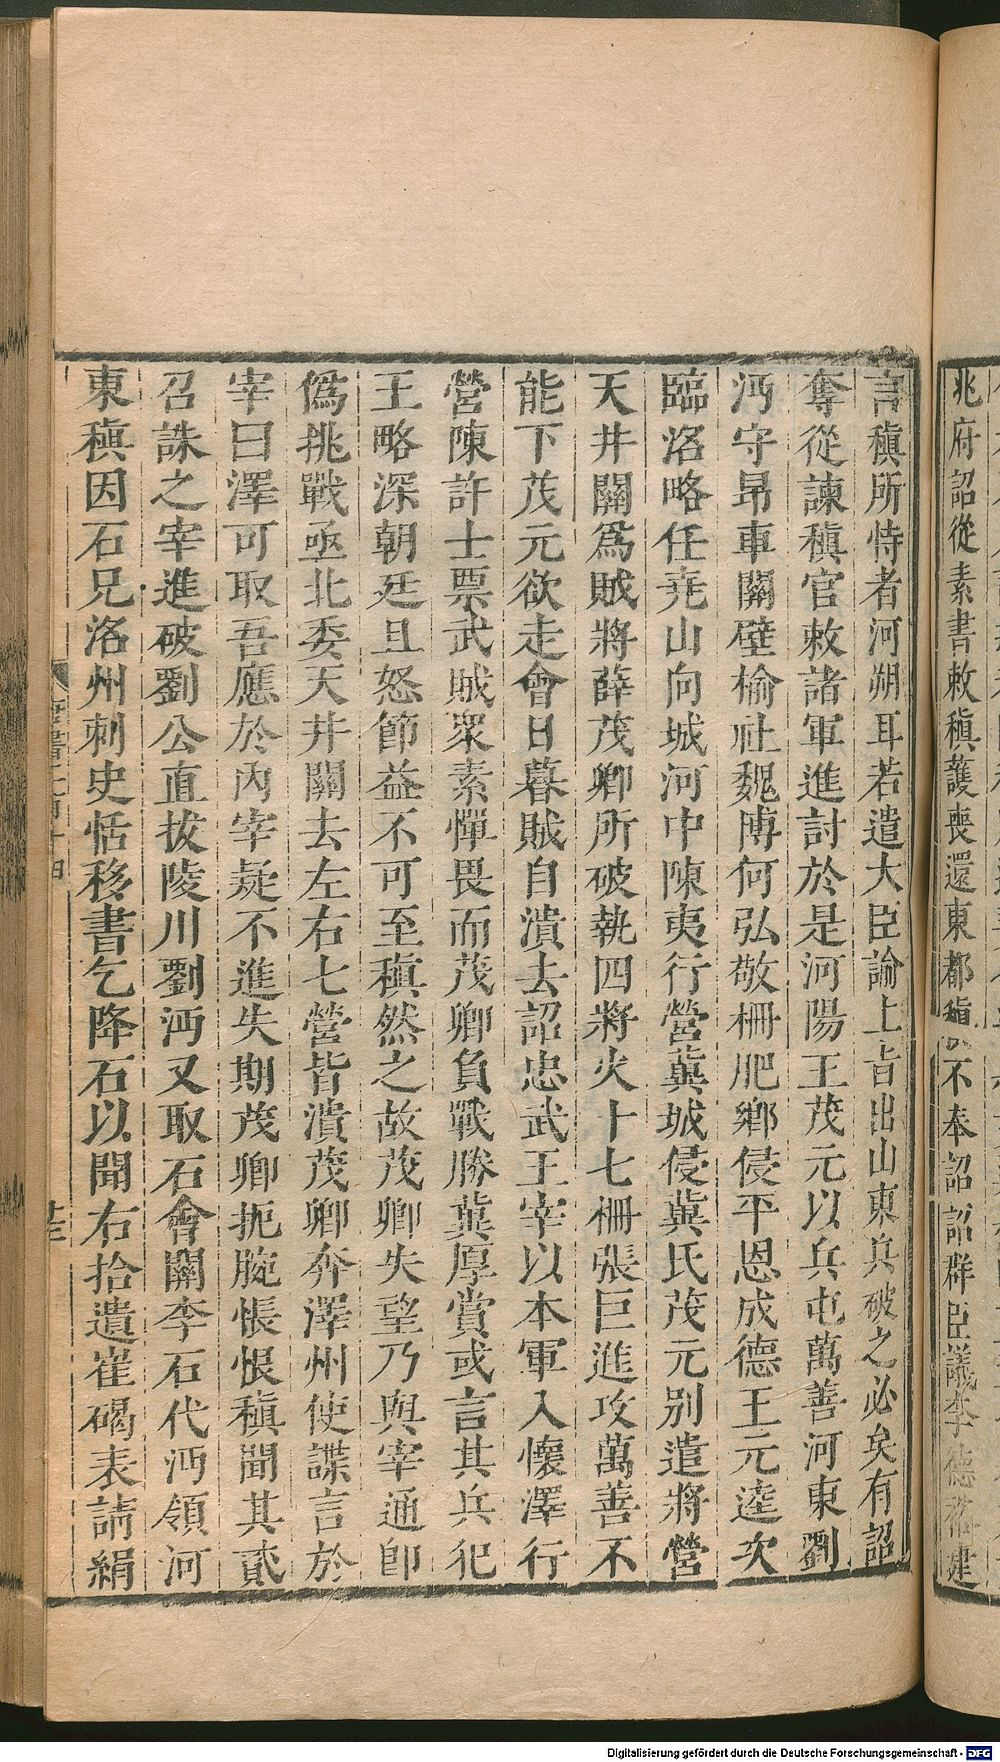 兆府詔從素書敕稹護喪還東都稹不奉詔詔群臣議李德裕建
言稹所恃者河朔耳若遣大臣諭上旨出山東兵破之必矣有詔
奪從諫稹官敕諸軍進討於是河陽王茂元以兵屯萬善河東劉
沔守昂車關壁榆社魏博何弘敬柵肥鄉侵平恩成德王元逵次
臨洺略任堯山向城河中陳夷行營冀城侵冀氏茂元別遣將營
天井關爲賊將薛茂卿所破執四將火十七柵張巨進攻萬善不
能下茂元欲走會日暮賊自潰去詔忠武王宰以本軍入懷澤行
營陳許士票武賊衆素憚畏而茂卿負戰勝冀厚賞或言其兵犯
王略深朝廷且怒節益不可至稹然之故茂卿失望乃與宰通卽
僞挑戰亟北委天井關去左右七營皆潰茂卿奔澤州使諜言於
宰曰澤可取吾應於內宰疑不進失期茂卿扼腕悵恨稹聞其貳
召誅之宰進破劉公直拔陵川劉沔又取石會關李石代沔領河
東稹因石兄洛州刺史恬移書乞降石以聞右拾遺崔碣表請絹